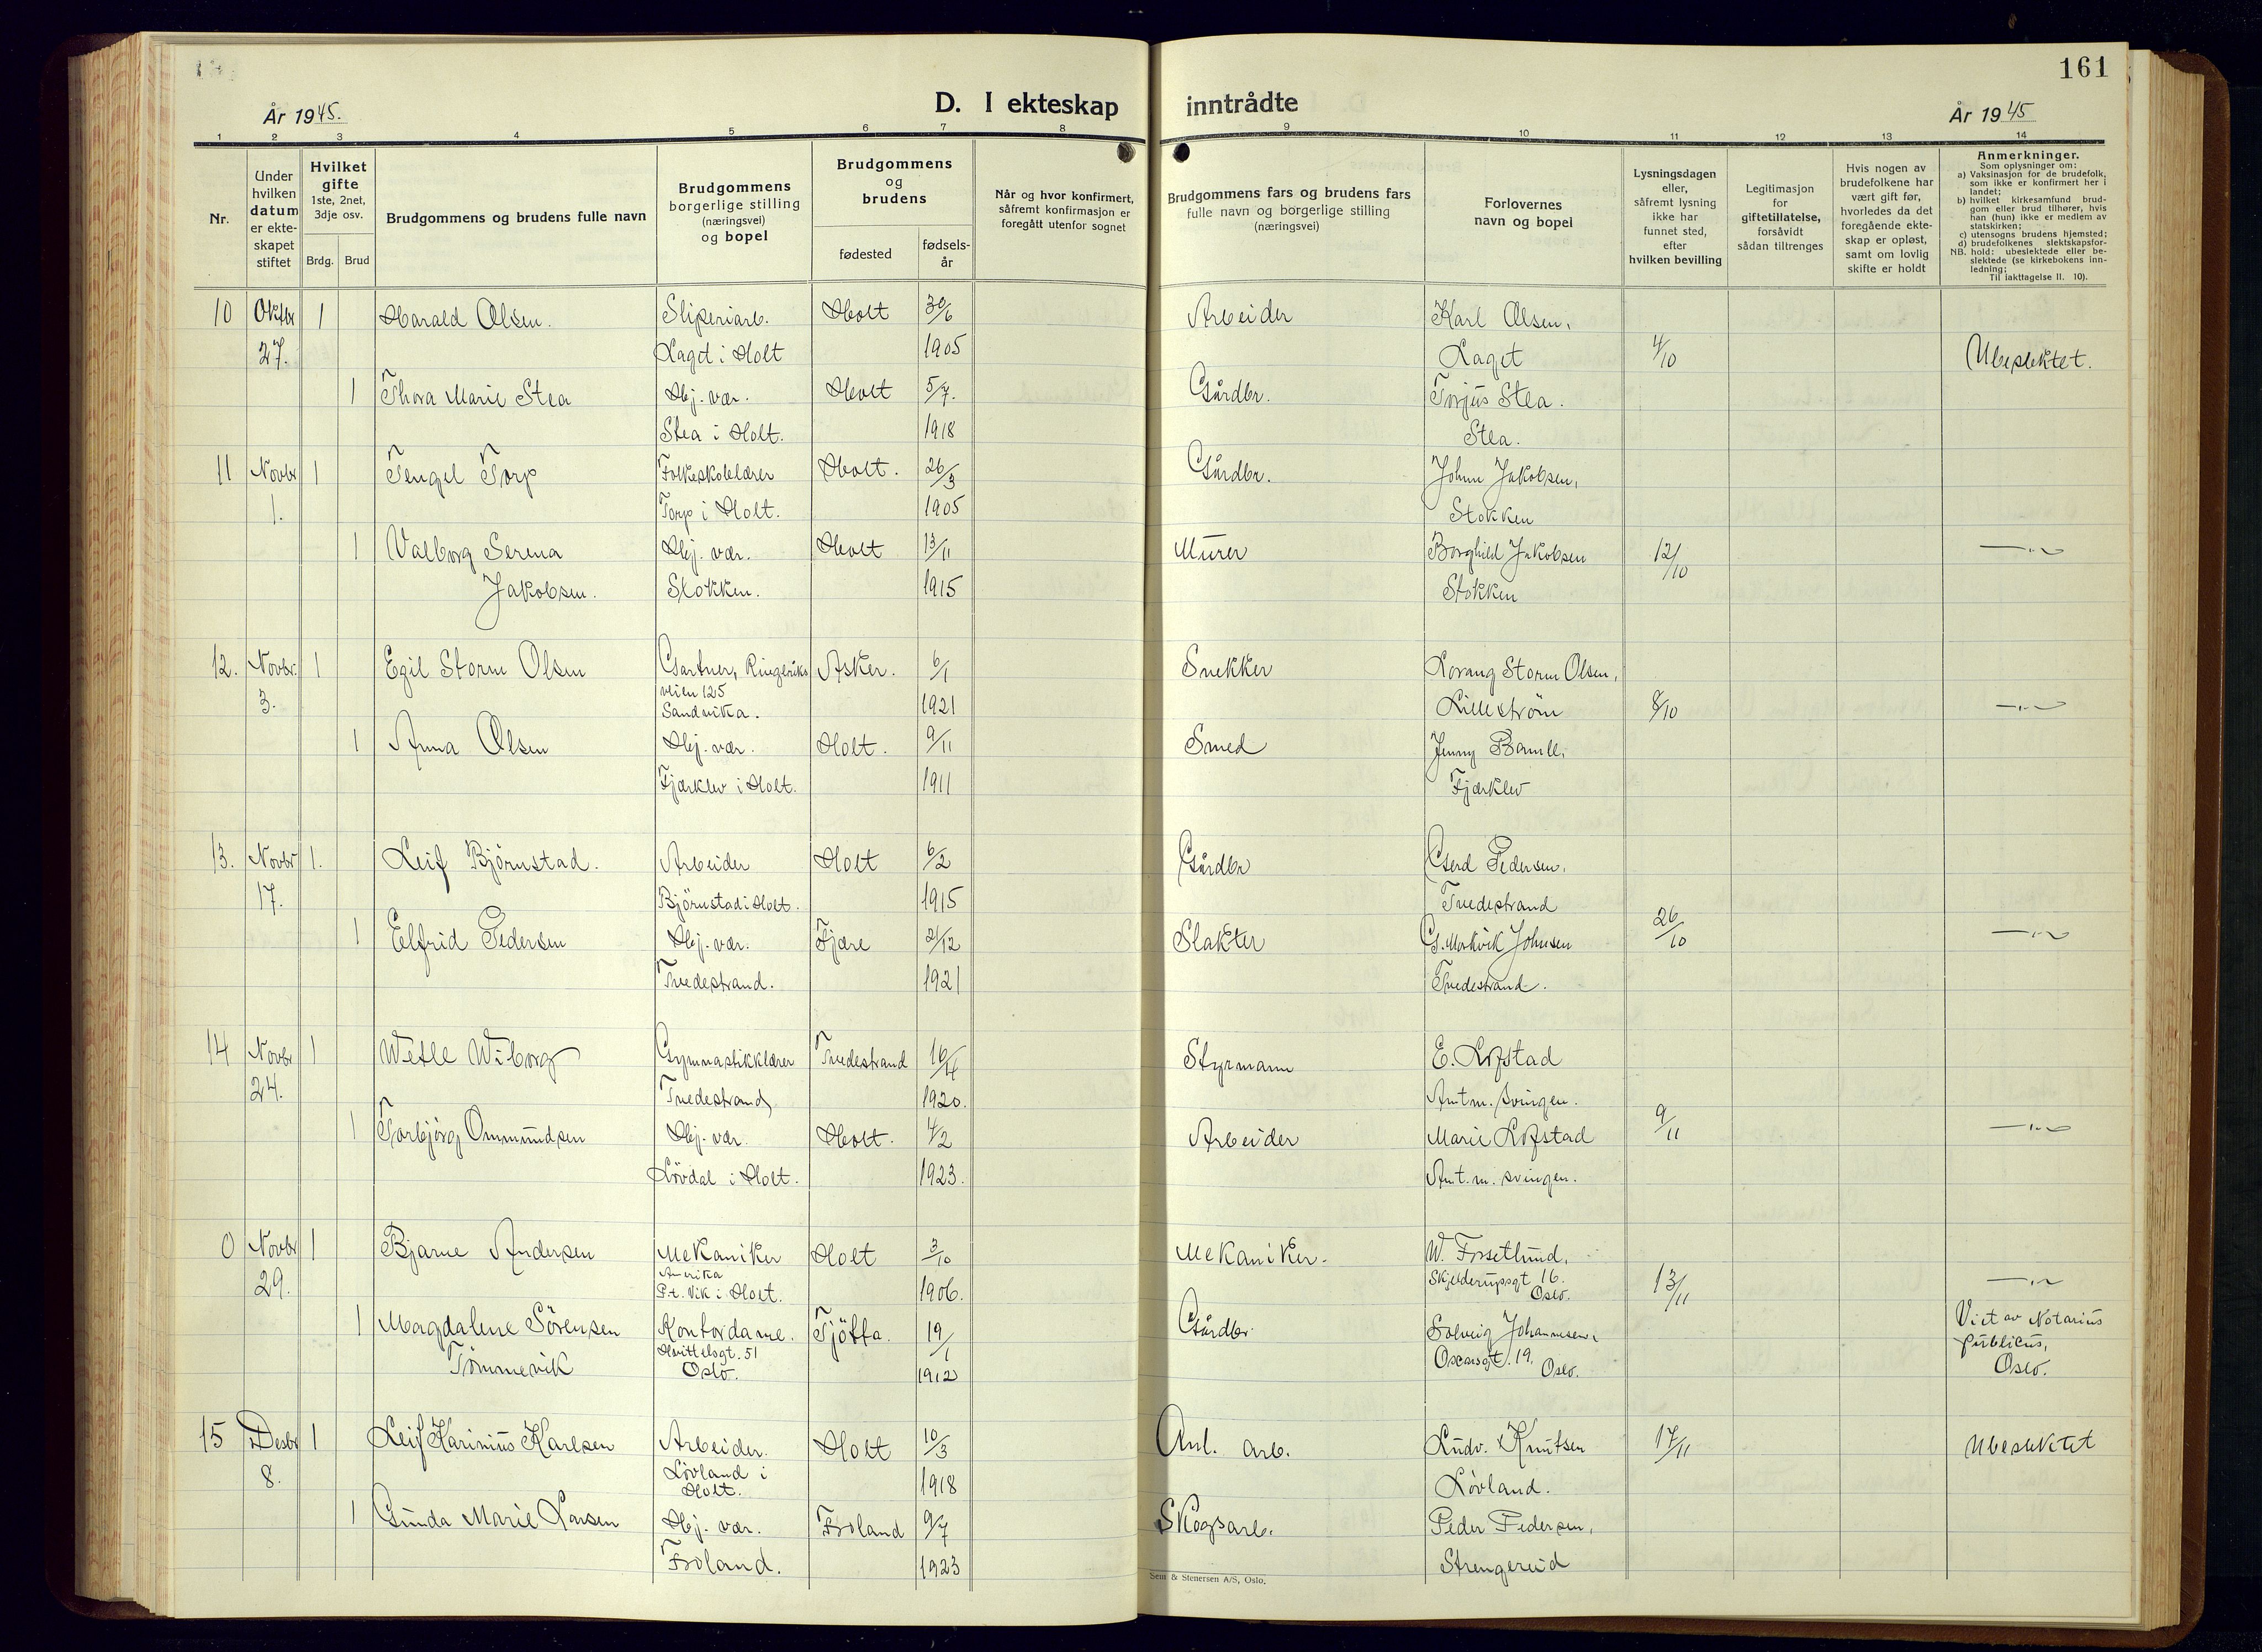 161
År 1945.
D. I ekteskap inntrådte
År 1945
1 2 3 4 5 6 7 8 9 10 11 12 13 14
Nr.
Under
hvilken
datum
er ekte-
skapet
stiftet
Hvilket
gifte
1ste, 2net,
3dje osv.
Brdg. Brud
Brudgommens og brudens fulle navn
Brudgommens
borgerlige stilling
(næringsvei)
og bopel
Brudgommens
og
brudens
fødested
fødsels-
år
Når og hvor konfirmert,
såfremt konfirmasjon er
foregått utenfor sognet
Brudgommens fars og brudens fars
fulle navn og borgerlige stilling
(næringsvei)
Forlovernes
navn og bopel
Lysningsdagen
eller,
såfremt lysning
ikke har
funnet sted,
efter
hvilken bevilling
Legitimasjon
for
giftetillatelse,
forsåvidt
sådan tiltrenges
Hvis nogen av
brudefolkene har
vært gift før,
hvorledes da det
foregående ekte-
skap er opløst,
samt om lovlig
skifte er holdt
Anmerkninger.
Som oplysninger om:
a) Vaksinasjon for de brudefolk,
som ikke er konfirmert her i
landet;
b) hvilket kirkesamfund brud-
gom eller brud tilhører, hvis
han (hun) ikke er medlem av
statskirken;
c) utensogns brudens hjemsted;
d) brudefolkenes slektskapsfor-
NB. hold: ubeslektede eller be-
slektede (se kirkebokens inn-
ledning;
Til iakttagelse II. 10).
10 Oktbr 1 Harald Olsen. Sliperiarb. Holt 30/6 Arbeider Karl Olsen,
27. Laget i Holt 1905 Laget 4/10 Ubeslektet.
1 Thora Marie Stea Hj. vær. Holt 5/7. Gårdbr. Torjus Stea.
Stea i Holt. 1918 Stea.
11 Novbr 1 Tengel Torp Folkeskolelærer Holt. 26/3 Gårdbr. Johan Jakobsen,
1. Torp i Holt. 1905 Stokken
1 Valborg Serena Hj. vær. Holt 13/11 Murer Borghild Jakobsen 12/10 —"—
Jakobsen. Stokken. 1915 Stokken
12. Novbr. 1 Egil Storm Olsen Gartner, Ringeriks Asker. 6/1 Snekker Storm Olsen,
3. veien 125
Sandvika. 1921 Lillestrøm 8/10 —"—
1 Anna Olsen Hj. vær. Holt. 9/11 Smed Jenny
Fjærklev i Holt. 1911 Fjærklev
13. Novbr 1. Leif Björnstad. Arbeider Holt 6/2 Gårdbr Gerd Pedersen,
17. Björnstad i Holt. 1915 Tvedestrand
1 Elfrid Pedersen Hj. vær. Fjære 21/12 Slakter G. Johnsen 26/10 —"—
Tvedestrand. 1921 Tvedestrand.
14 Novbr 1 Wetle Wiborg Gymnastikklærer Tvedestrand 16/4 Styrmann E. Lofstad
24. Tvedestrand 1920. Amtm. svingen.
1 Torbjörg Ommundsen Hj. vær. Holt. 4/2 Arbeider Marie Lofstad 9/11 —"—
Lövdal i Holt. 1923. Amt. m. svingen.
0 Novbr 1 Bjarne Andersen Mekaniker Holt 3/10 Mekaniker. W. Forsetlund,
29. Amerika
P.t. Vik i Holt. 1906. Skjelderupsgt 16.
Oslo. 13/11 —"—
1 Magdalene Sörensen Kontordame. Tjötta. 19/1 Gårdbr Solveig Johannesen, Viet av Notarius
Tömmervik Hvittelsgt. 51
Oslo. 1912 Oscarsgt. 19. Oslo. publicus,
Oslo.
15 Desbr 1 Leif Karinius Karlsen Arbeider. Holt 10/3 Anl. arb. Ludv. Knutsen 17/11 Ubeslektet
8. Lövland i
Holt. 1918 Lövland.
1 Gunda Marie Larsen Hj. vær. Froland 9/7 Skogsarb. Peder Pedersen,
Froland. 1923 Strengereid
Sem & Stenersen A/S, Oslo.